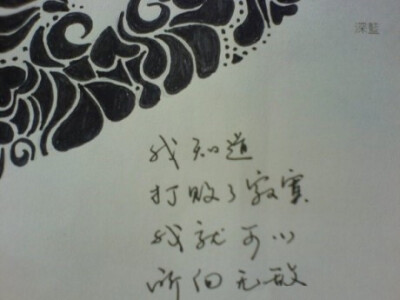 深藍
我知道
打败了寂寞
我就可以
所向无敌